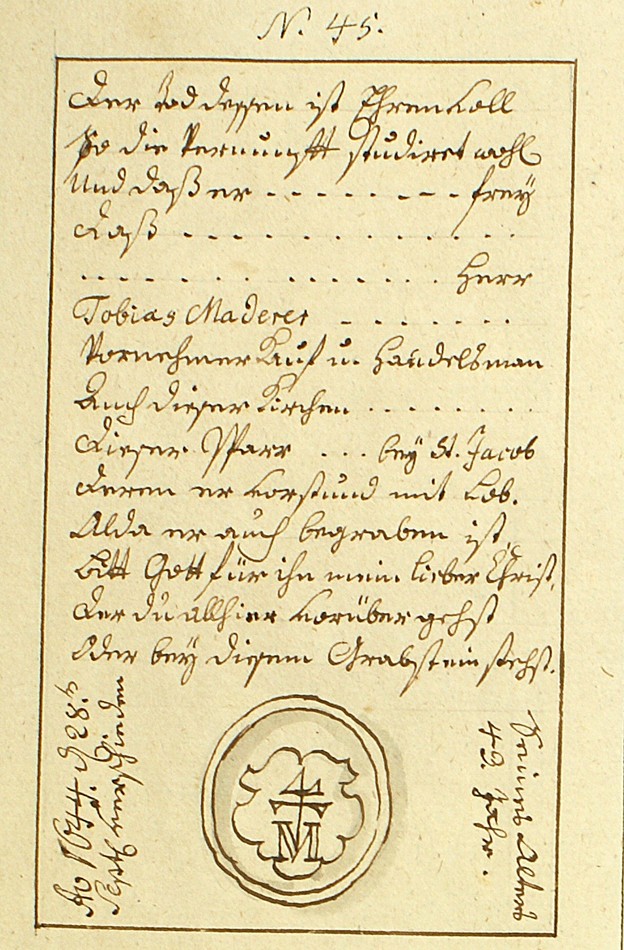 N. 45.
Der Tod dessen ist Ehrenvoll
So die Vernunfft studiret wohl
Und daß er - - - - - - - - frey
Daß - - - - - - - - - - - - -
- - - - - - - - - - - - - - Herr
Tobias Maderer - - - - - - -
Vornehmer Kauf u. Handelsman
Auch dieser Kirchen . . . . . . . .
Dieser Pfarr . . . bey St. Jacob
Deren er vorstund mit Lob.
Alda er auch begraben ist,
Bitt Gott für ihn mein lieber Christ,
Der du allhier vorüber gehst
Oder bey diesem Grabstein stehst.
Ao 1644. d. 28.
Sept. verschieden
Seines Alters
49. Jahr.
4
M